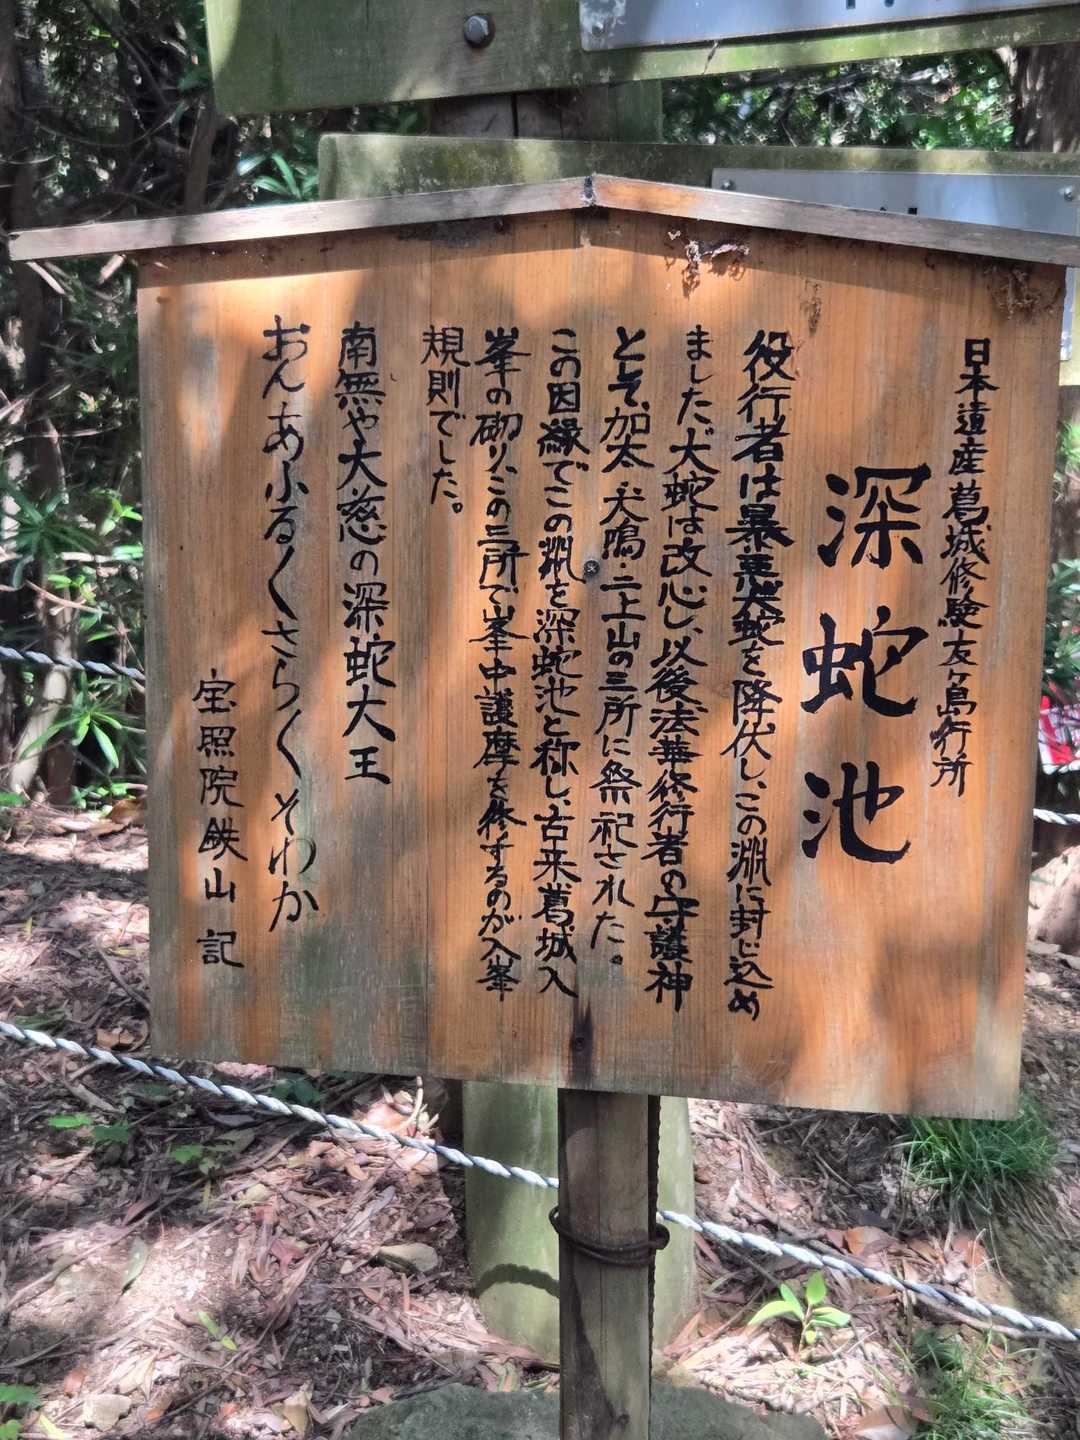 日本遺産葛城修験友ヶ島行所
深蛇池
役行者は暴悪大蛇を降伏し、この淵に封じ込め
ました。大蛇は改心し、以後法華修行者の守護神
として、加太・犬鳴・二上山の三所に祭祀された。
この因縁でこの淵を深蛇池と称し、古来葛城入
峯の砌り、この三所で峯中護摩を修するのが入峯
規則でした。
南無や大慈の深蛇大王
おん・あふるくさらくそわか
宝照院鉄山 記